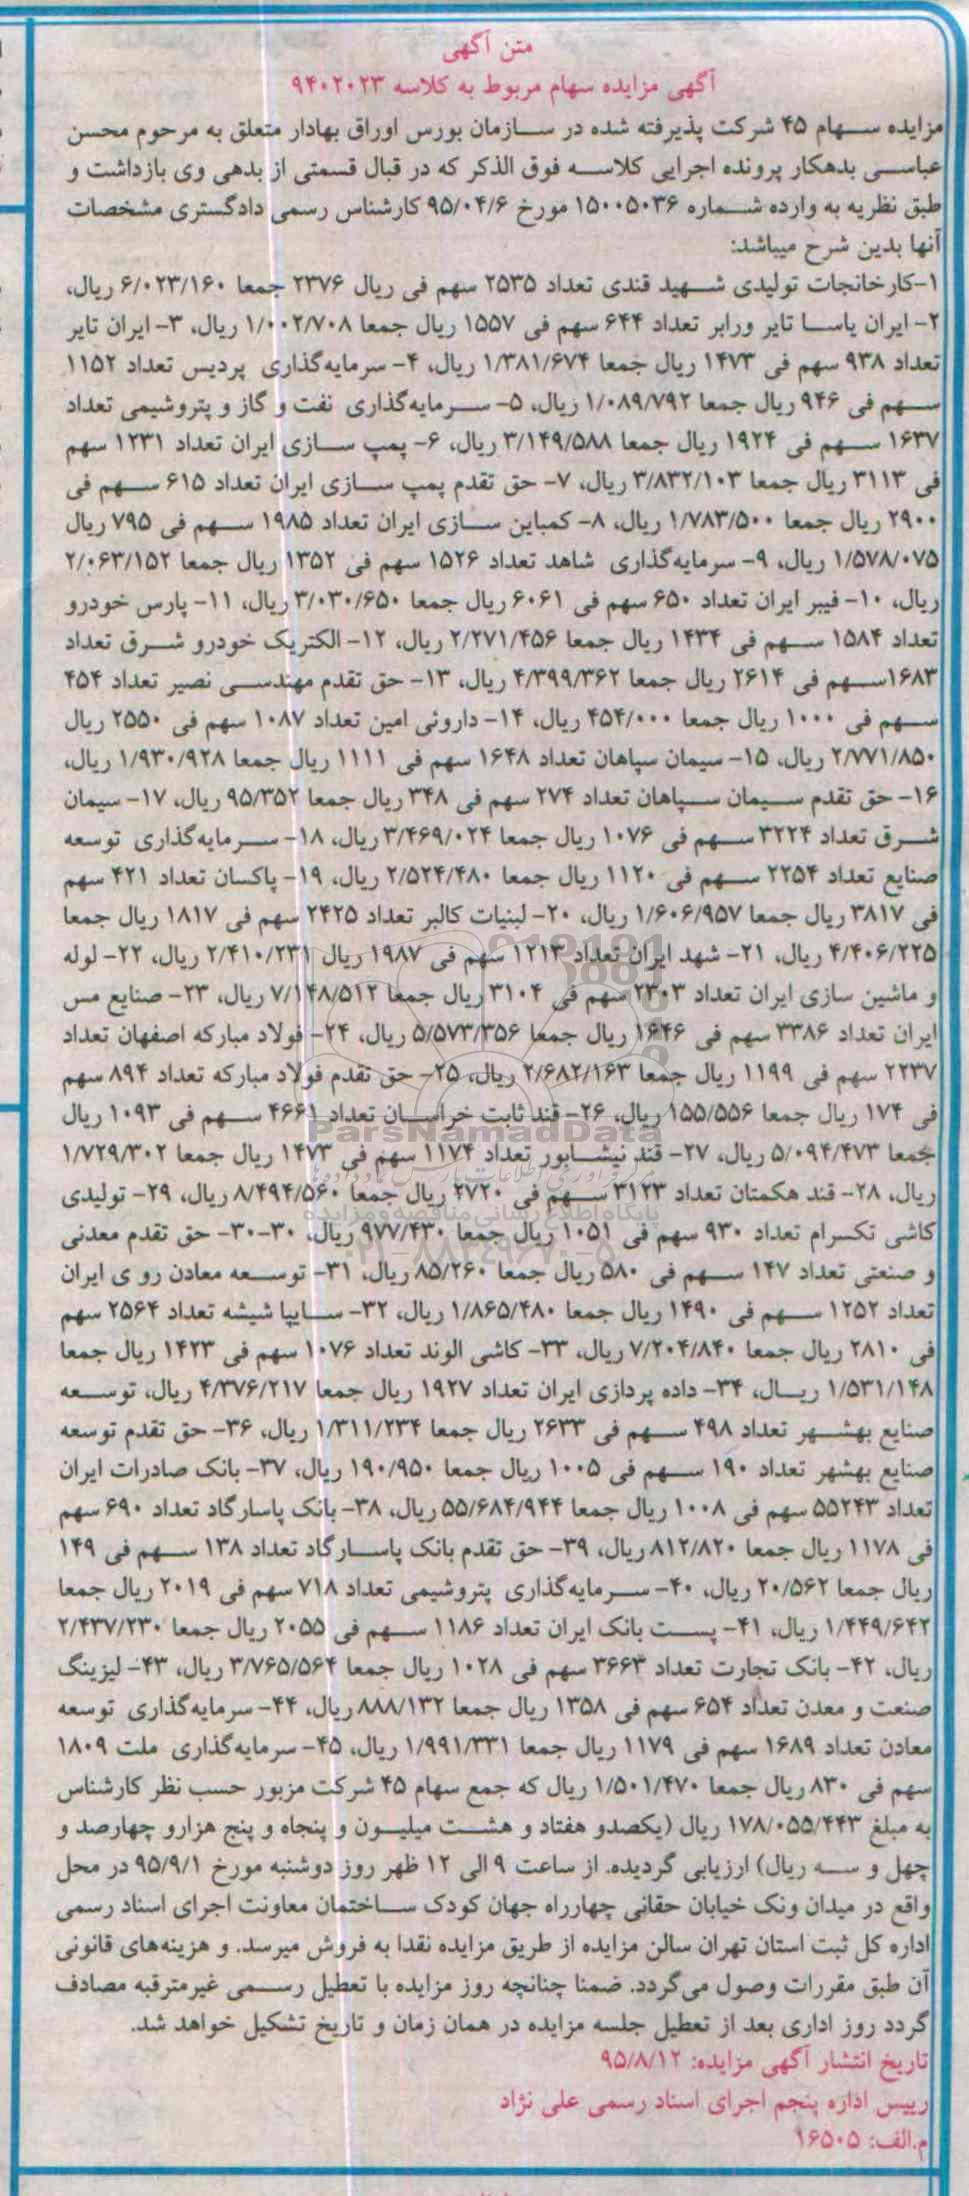 متن آگهی
آگهی مزایده سهام مربوط به کلاسه ۹۴۰۲۰۲۳
مزایده سهام ۴۵ شرکت پذیرفته شده در سازمان بورس اوراق بهادار متعلق به مرحوم محسن
عباسی بدهکار پرونده اجرایی کلاسه فوق الذکر که در قبال قسمتی از بدهی وی بازداشت و
طبق نظریه به وارده شماره ۱۵۰۰۵۰۳۶ مورخ ۹۵/۰۴/۶ کارشناس رسمی دادگستری مشخصات
آنها بدین شرح میباشد:
۱-کارخانجات تولیدی شهید قندی تعداد ۲۵۳۵ سهم فی ریال ۲۳۷۶ جمعا ۶/۰۲۳/۱۶۰ ریال،
۲- ایران یاسا تایر ورابر تعداد ۶۴۴ سهم فی ۱۵۵۷ ریال جمعا ۱/۰۰۲/۷۰۸ ریال، ۳- ایران تایر
تعداد ۹۳۸ سهم فی ۱۴۷۳ ریال جمعا ۱/۳۸۱/۶۷۴ ریال، ۴- سرمایه‌گذاری پردیس تعداد ۱۱۵۲
سهم فی ۹۴۶ ریال جمعا ۱/۰۸۹/۷۹۲ ریال، ۵- سرمایه‌گذاری نفت و گاز و پتروشیمی تعداد
۱۶۳۷ سهم فی ۱۹۲۴ ریال جمعا ۳/۱۴۹/۵۸۸ ریال، ۶- پمپ سازی ایران تعداد ۱۲۳۱ سهم
فی ۳۱۱۳ ریال جمعا ۳/۸۳۲/۱۰۳ ریال، ۷- حق تقدم پمپ سازی ایران تعداد ۶۱۵ سهم فی
۲۹۰۰ ریال جمعا ۱/۷۸۳/۵۰۰ ریال، ۸- کمباین سازی ایران تعداد ۱۹۸۵ سهم فی ۷۹۵ ریال
۱/۵۷۸/۰۷۵ ریال، ۹- سرمایه‌گذاری شاهد تعداد ۱۵۲۶ سهم فی ۱۳۵۲ ریال جمعا ۲/۰۶۳/۱۵۲
ریال، ۱۰- فیبر ایران تعداد ۶۵۰ سهم فی ۶۰۶۱ ریال جمعا ۳/۰۳۰/۶۵۰ ریال، ۱۱- پارس خودرو
تعداد ۱۵۸۴ سهم فی ۱۴۳۴ ریال جمعا ۲/۲۷۱/۴۵۶ ریال، ۱۲- الکتریک خودرو شرق تعداد
۱۶۸۳سهم فی ۲۶۱۴ ریال جمعا ۴/۳۹۹/۳۶۲ ریال، ۱۳- حق تقدم مهندسی نصیر تعداد ۴۵۴
سهم فی ۱۰۰۰ ریال جمعا ۴۵۴/۰۰۰ ریال، ۱۴- داروئی امین تعداد ۱۰۸۷ سهم فی ۲۵۵۰ ریال
۲/۷۷۱/۸۵۰ ریال، ۱۵- سیمان سپاهان تعداد ۱۶۴۸ سهم فی ۱۱۱۱ ریال جمعا ۱/۹۳۰/۹۲۸ ریال،
۱۶- حق تقدم سیمان سپاهان تعداد ۲۷۴ سهم فی ۳۴۸ ریال جمعا ۹۵/۳۵۲ ریال، ۱۷- سیمان
شرق تعداد ۳۲۲۴ سهم فی ۱۰۷۶ ریال جمعا ۳/۴۶۹/۰۲۴ ریال، ۱۸- سرمایه‌گذاری توسعه
صنایع تعداد ۲۲۵۴ سهم فی ۱۱۲۰ ریال جمعا ۲/۵۲۴/۴۸۰ ریال، ۱۹- پاکسان تعداد ۴۲۱ سهم
فی ۳۸۱۷ ریال جمعا ۱/۶۰۶/۹۵۷ ریال، ۲۰- لبنیات کالبر تعداد ۲۴۲۵ سهم فی ۱۸۱۷ ریال جمعا
۴/۴۰۶/۲۲۵ ریال، ۲۱- شهد ایران تعداد ۱۲۱۳ سهم فی ۱۹۸۷ ریال ۲/۴۱۰/۲۳۱ ریال، ۲۲- لوله
و ماشین سازی ایران تعداد ۲۳۰۳ سهم فی ۳۱۰۴ ریال جمعا ۷/۱۴۸/۵۱۲ ریال، ۲۳- صنایع مس
ایران تعداد ۳۳۸۶ سهم فی ۱۶۴۶ ریال جمعا ۵/۵۷۳/۳۵۶ ریال، ۲۴- فولاد مبارکه اصفهان تعداد
۲۲۳۷ سهم فی ۱۱۹۹ ریال جمعا ۲/۶۸۲/۱۶۳ ریال، ۲۵- حق تقدم فولاد مبارکه تعداد ۸۹۴ سهم
فی ۱۷۴ ریال جمعا ۱۵۵/۵۵۶ ریال، ۲۶- قند ثابت خراسان تعداد ۴۶۶۱ سهم فی ۱۰۹۳ ریال
جمعا ۵/۰۹۴/۴۷۳ ریال، ۲۷- قند نیشابور تعداد ۱۱۷۴ سهم فی ۱۴۷۳ ریال جمعا ۱/۷۲۹/۳۰۲
ریال، ۲۸- قند هکمتان تعداد ۳۱۲۳ سهم فی ۲۷۲۰ ریال جمعا ۸/۴۹۴/۵۶۰ ریال، ۲۹- تولیدی
کاشی تکسرام تعداد ۹۳۰ سهم فی ۱۰۵۱ ریال جمعا ۹۷۷/۴۳۰ ریال، ۳۰-۳۰- حق تقدم معدنی
و صنعتی تعداد ۱۴۷ سهم فی ۵۸۰ ریال جمعا ۸۵/۲۶۰ ریال، ۳۱- توسعه معادن رو ی ایران
تعداد ۱۲۵۲ سهم فی ۱۴۹۰ ریال جمعا ۱/۸۶۵/۴۸۰ ریال، ۳۲- سایپا شیشه تعداد ۲۵۶۴ سهم
فی ۲۸۱۰ ریال جمعا ۷/۲۰۴/۸۴۰ ریال، ۳۳- کاشی الوند تعداد ۱۰۷۶ سهم فی ۱۴۲۳ ریال جمعا
۱/۵۳۱/۱۴۸ ریال، ۳۴- داده پردازی ایران تعداد ۱۹۲۷ ریال جمعا ۴/۳۷۶/۲۱۷ ریال، توسعه
صنایع بهشهر تعداد ۴۹۸ سهم فی ۲۶۳۳ ریال جمعا ۱/۳۱۱/۲۳۴ ریال، ۳۶- حق تقدم توسعه
صنایع بهشهر تعداد ۱۹۰ سهم فی ۱۰۰۵ ریال جمعا ۱۹۰/۹۵۰ ریال، ۳۷- بانک صادرات ایران
تعداد ۵۵۲۴۳ سهم فی ۱۰۰۸ ریال جمعا ۵۵/۶۸۴/۹۴۴ ریال، ۳۸- بانک پاسارگاد تعداد ۶۹۰ سهم
فی ۱۱۷۸ ریال جمعا ۸۱۲/۸۲۰ ریال، ۳۹- حق تقدم بانک پاسارگاد تعداد ۱۳۸ سهم فی ۱۴۹
ریال جمعا ۲۰/۵۶۲ ریال، ۴۰- سرمایه‌گذاری پتروشیمی تعداد ۷۱۸ سهم فی ۲۰۱۹ ریال جمعا
۱/۴۴۹/۶۴۲ ریال، ۴۱- پست بانک ایران تعداد ۱۱۸۶ سهم فی ۲۰۵۵ ریال جمعا ۲/۴۳۷/۲۳۰
ریال، ۴۲- بانک تجارت تعداد ۳۶۶۳ سهم فی ۱۰۲۸ ریال جمعا ۳/۷۶۵/۵۶۴ ریال، ۴۳- لیزینگ
صنعت و معدن تعداد ۶۵۴ سهم فی ۱۳۵۸ ریال جمعا ۸۸۸/۱۳۲ ریال، ۴۴- سرمایه‌گذاری توسعه
معادن تعداد ۱۶۸۹ سهم فی ۱۱۷۹ ریال جمعا ۱/۹۹۱/۳۳۱ ریال، ۴۵- سرمایه‌گذاری ملت ۱۸۰۹
سهم فی ۸۳۰ ریال جمعا ۱/۵۰۱/۴۷۰ ریال که جمع سهام ۴۵ شرکت مزبور حسب نظر کارشناس
به مبلغ ۱۷۸/۰۵۵/۴۴۳ ریال (یکصدو هفتاد و هشت میلیون و پنجاه و پنج هزارو چهارصد و
چهل و سه ریال) ارزیابی گردیده. از ساعت ۹ الی ۱۲ ظهر روز دوشنبه مورخ ۹۵/۹/۱ در محل
واقع در میدان ونک خیابان حقانی چهارراه جهان کودک ساختمان معاونت اجرای اسناد رسمی
اداره کل ثبت استان تهران سالن مزایده از طریق مزایده نقدا به فروش میرسد. و هزینه‌های قانونی
آن طبق مقررات وصول می‌گردد. ضمنا چنانچه روز مزایده با تعطیل رسمی غیرمترقبه مصادف
گردد روز اداری بعد از تعطیل جلسه مزایده در همان زمان و تاریخ تشکیل خواهد شد.
تاریخ انتشار آگهی مزایده: ۹۵/۸/۱۲
رییس اداره پنجم اجرای اسناد رسمی علی نژاد
م.الف: ۱۶۵۰۵
ParsNamadData
پایگاه اطلاع رسانی مناقصه و مزایده